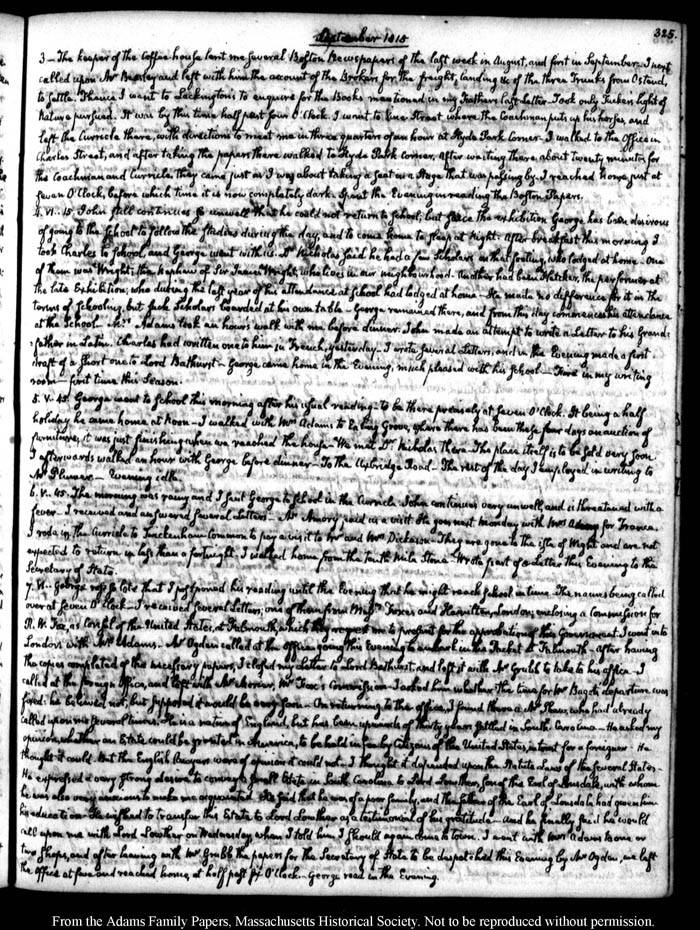 325.
September 1815
3— The keeper of the Coffee house lent me several Boston Newspapers of the last week in August, and first in September. I next
called upon Mr Beasley and left with him the account of the Brokers for the freight, landing &c of the three Trunks from Ostend,
to settle. Thence I went to Lackington's to enquire for the Books mentioned in my Father's last Letter. Took only Tucker's light of
Nature pursued. It was by this time half past four O'Clock. I went to Street where the Coachman put up his horses, and
left the Curricle there, with directions to meet me in three quarters of an hour at Hyde Park Corner. I walked to the Office in
Charles Street, and after taking the papers there walked to Hyde Park corner. After waiting there about twenty minutes for
the Coachman and Curricle, they came just as I was about taking a seat in a Stage that was passing by. I reached home just at
seven O'Clock, before which time it is now completely dark. Spent the Evening in reading the Boston Papers.
4. VI. 15. John still continues so unwell that he could not return to School; but since the exhibition George has been desirous
of going to the School to follow the Studies during the day, and to come home to sleep at Night. After breakfast this morning I
took Charles to School, and George went with us. Dr Nicholas said he had a few Scholars on that footing, who lodged at home. One
of them was Wright, the nephew of Sir James Wright, who lives in our neighbourhood. Another had been Thatcher, the performer at
the late Exhibition; who during the last year of his attendance at School had lodged at home— He made no difference for it in the
terms of Schooling, but such Scholars boarded at his own table— George remained there, and from this day commences his attendance
at the School. Mrs Adams took an hour's walk with me before dinner. John made an attempt to write a Letter to his Grand-
father in Latin. Charles had written one to him in French, yesterday— I wrote several Letters, and in the Evening made a first
draft of a short one to Lord Bathurst— George came home in the Evening, much pleased with his School— Fire in my writing
room— first time this Season.
5. V. 45. George went to School this morning after his usual reading— to be there precisely at Seven O'Clock. It being a half
holiday he came home at Noon— I walked with Mrs Adams to Ealing Grove, where there has been these four days an auction of
furniture; it was just finishing when we reached the house— We met Dr Nicholas there— The place itself is to be sold very soon.
I afterwards walked an hour with George before dinner— To the Uxbridge Road— The rest of the day I employed in writing to
Mr Plumer— Evening idle.
6. V. 45. The morning was rainy and I sent George to School in the Curricle. John continues very unwell, and is threatened with a
fever— I received and answered several Letters— Mr Amory paid us a visit. He goes next Monday with Mrs Amory for France.
I rode in the Curricle to Twickenham Common to pay a visit to Mr and Mrs Dickason— They are gone to the isle of Wight and are not
expected to return in less than a fortnight. I walked home from the tenth Mile Stone— Wrote part of a Letter this Evening to the
Secretary of State.
7. VI— George rose so late that I postponed his reading until the Evening that he might reach School in time. The names being called
over at Seven O'Clock— I received several Letters; one of them from Messrs Foxes and London; enclosing a Commission for
R. W. Fox, as Consul of the United States, at Falmouth, which they request me to present for the approbation of this Government. I went into
London with Mrs Adams— Mr Ogden called at the Office, going this Evening to embark in the Packet at Falmouth— After having
the copies completed of the necessary papers, I closed my Letter to Lord Bathurst, and left it with Mr Grubb to take to his office— I
called at the foreign Office, and left with Mr Morier, Mr Fox's Commission— I asked him whether the time for Mr Bagot's departure was
fixed: he believed not, but supposed it would be very soon— On returning to the office, I found there a Mr Shaw, who had already
called upon me several times. He is a native of England, but has been upwards of thirty years settled in South Carolina— He asked my
opinion whether an Estate could be created in America, to be held in fee by Citizens of the United States, in trust for a foreigner— He
thought it could. But the English lawyers were of opinion it could not— I thought it depended upon the Statute Laws of the several States—
He expressed a very strong desire to convey a small Estate in South Carolina to Lord Lowther, son of the Earl of Lonsdale, with whom
he was also very anxious to make me acquainted— He said that he was of a poor family, and the father of the Earl of Lonsdale had given him
his education— He wished to transfer this Estate to Lord Lowther as a testimonial of his gratitude— And he finally said he would
call upon me with Lord Lowther on Wednesday when I told him I should again come to town. I went with Mrs Adams to one or
two shops, and after leaving with Mr Grubb the papers for the Secretary of State to be despatched this Evening by Mr Ogden, we left
the office at five and reached home, at half past O'Clock— George read in the Evening.
From the Adams Family Papers, Massachusetts Historical Society. Not to be reproduced without permission.